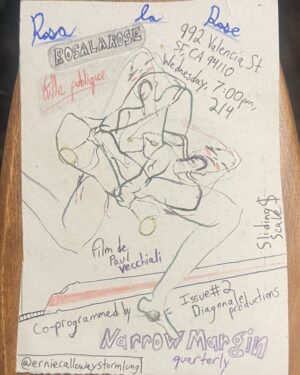 Rosa la Rose
ROSALAROSE
fille publique
992 Valencia St.
SF, CA 94110
Wednesday, 7:00pm,
2/4
Film de
Paul
Vecchiali
Sliding $
Scale $
Co-programmed by
Issue #2
Diagonale productions
Narrow Margin
quarterly
@erniecallowaystormlung